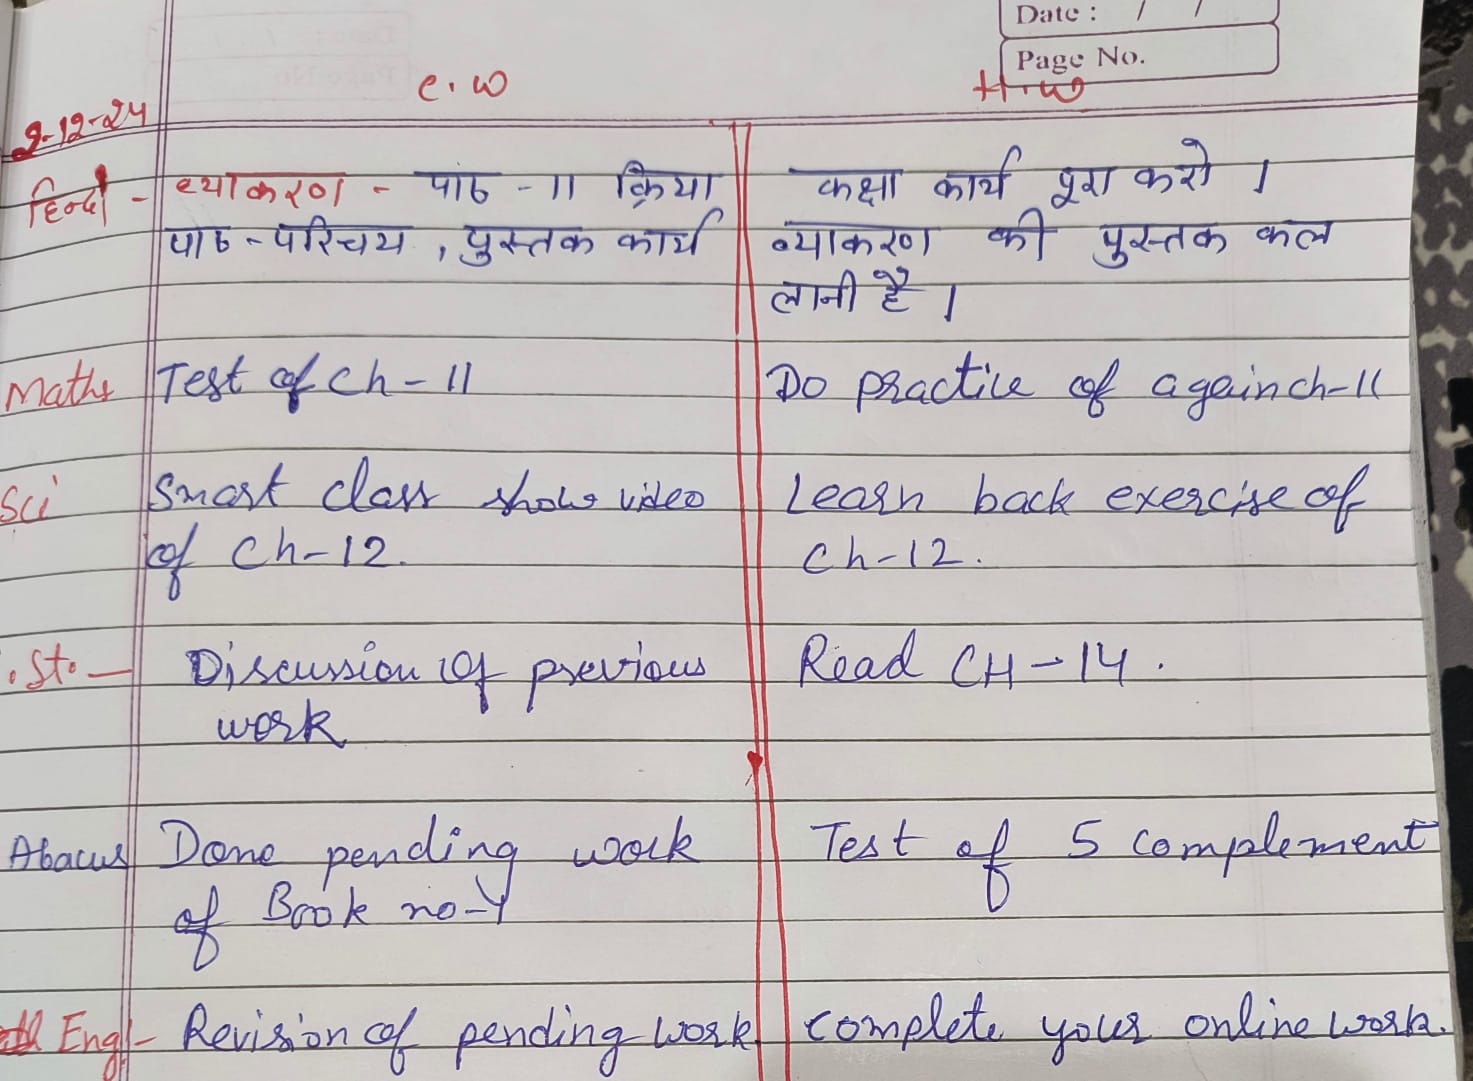 Date : / /
Page No.
C.W H.W
2-12-24
हिन्दी - व्याकरण - पाठ - 11 क्रिया कक्षा कार्य पूरा करो ।
पाठ - परिचय , पुस्तक कार्य व्याकरण की पुस्तक कल
लानी है ।
Maths Test of Ch - 11 Do practice of again ch-11
Sci Smart class show video Learn back exercise of
of Ch-12. Ch-12.
. St. — Discussion of previous Read CH-14.
work
Abacus Done pending work Test of 5 complement
of Book no-4
Eng - Revision of pending work complete your online work.